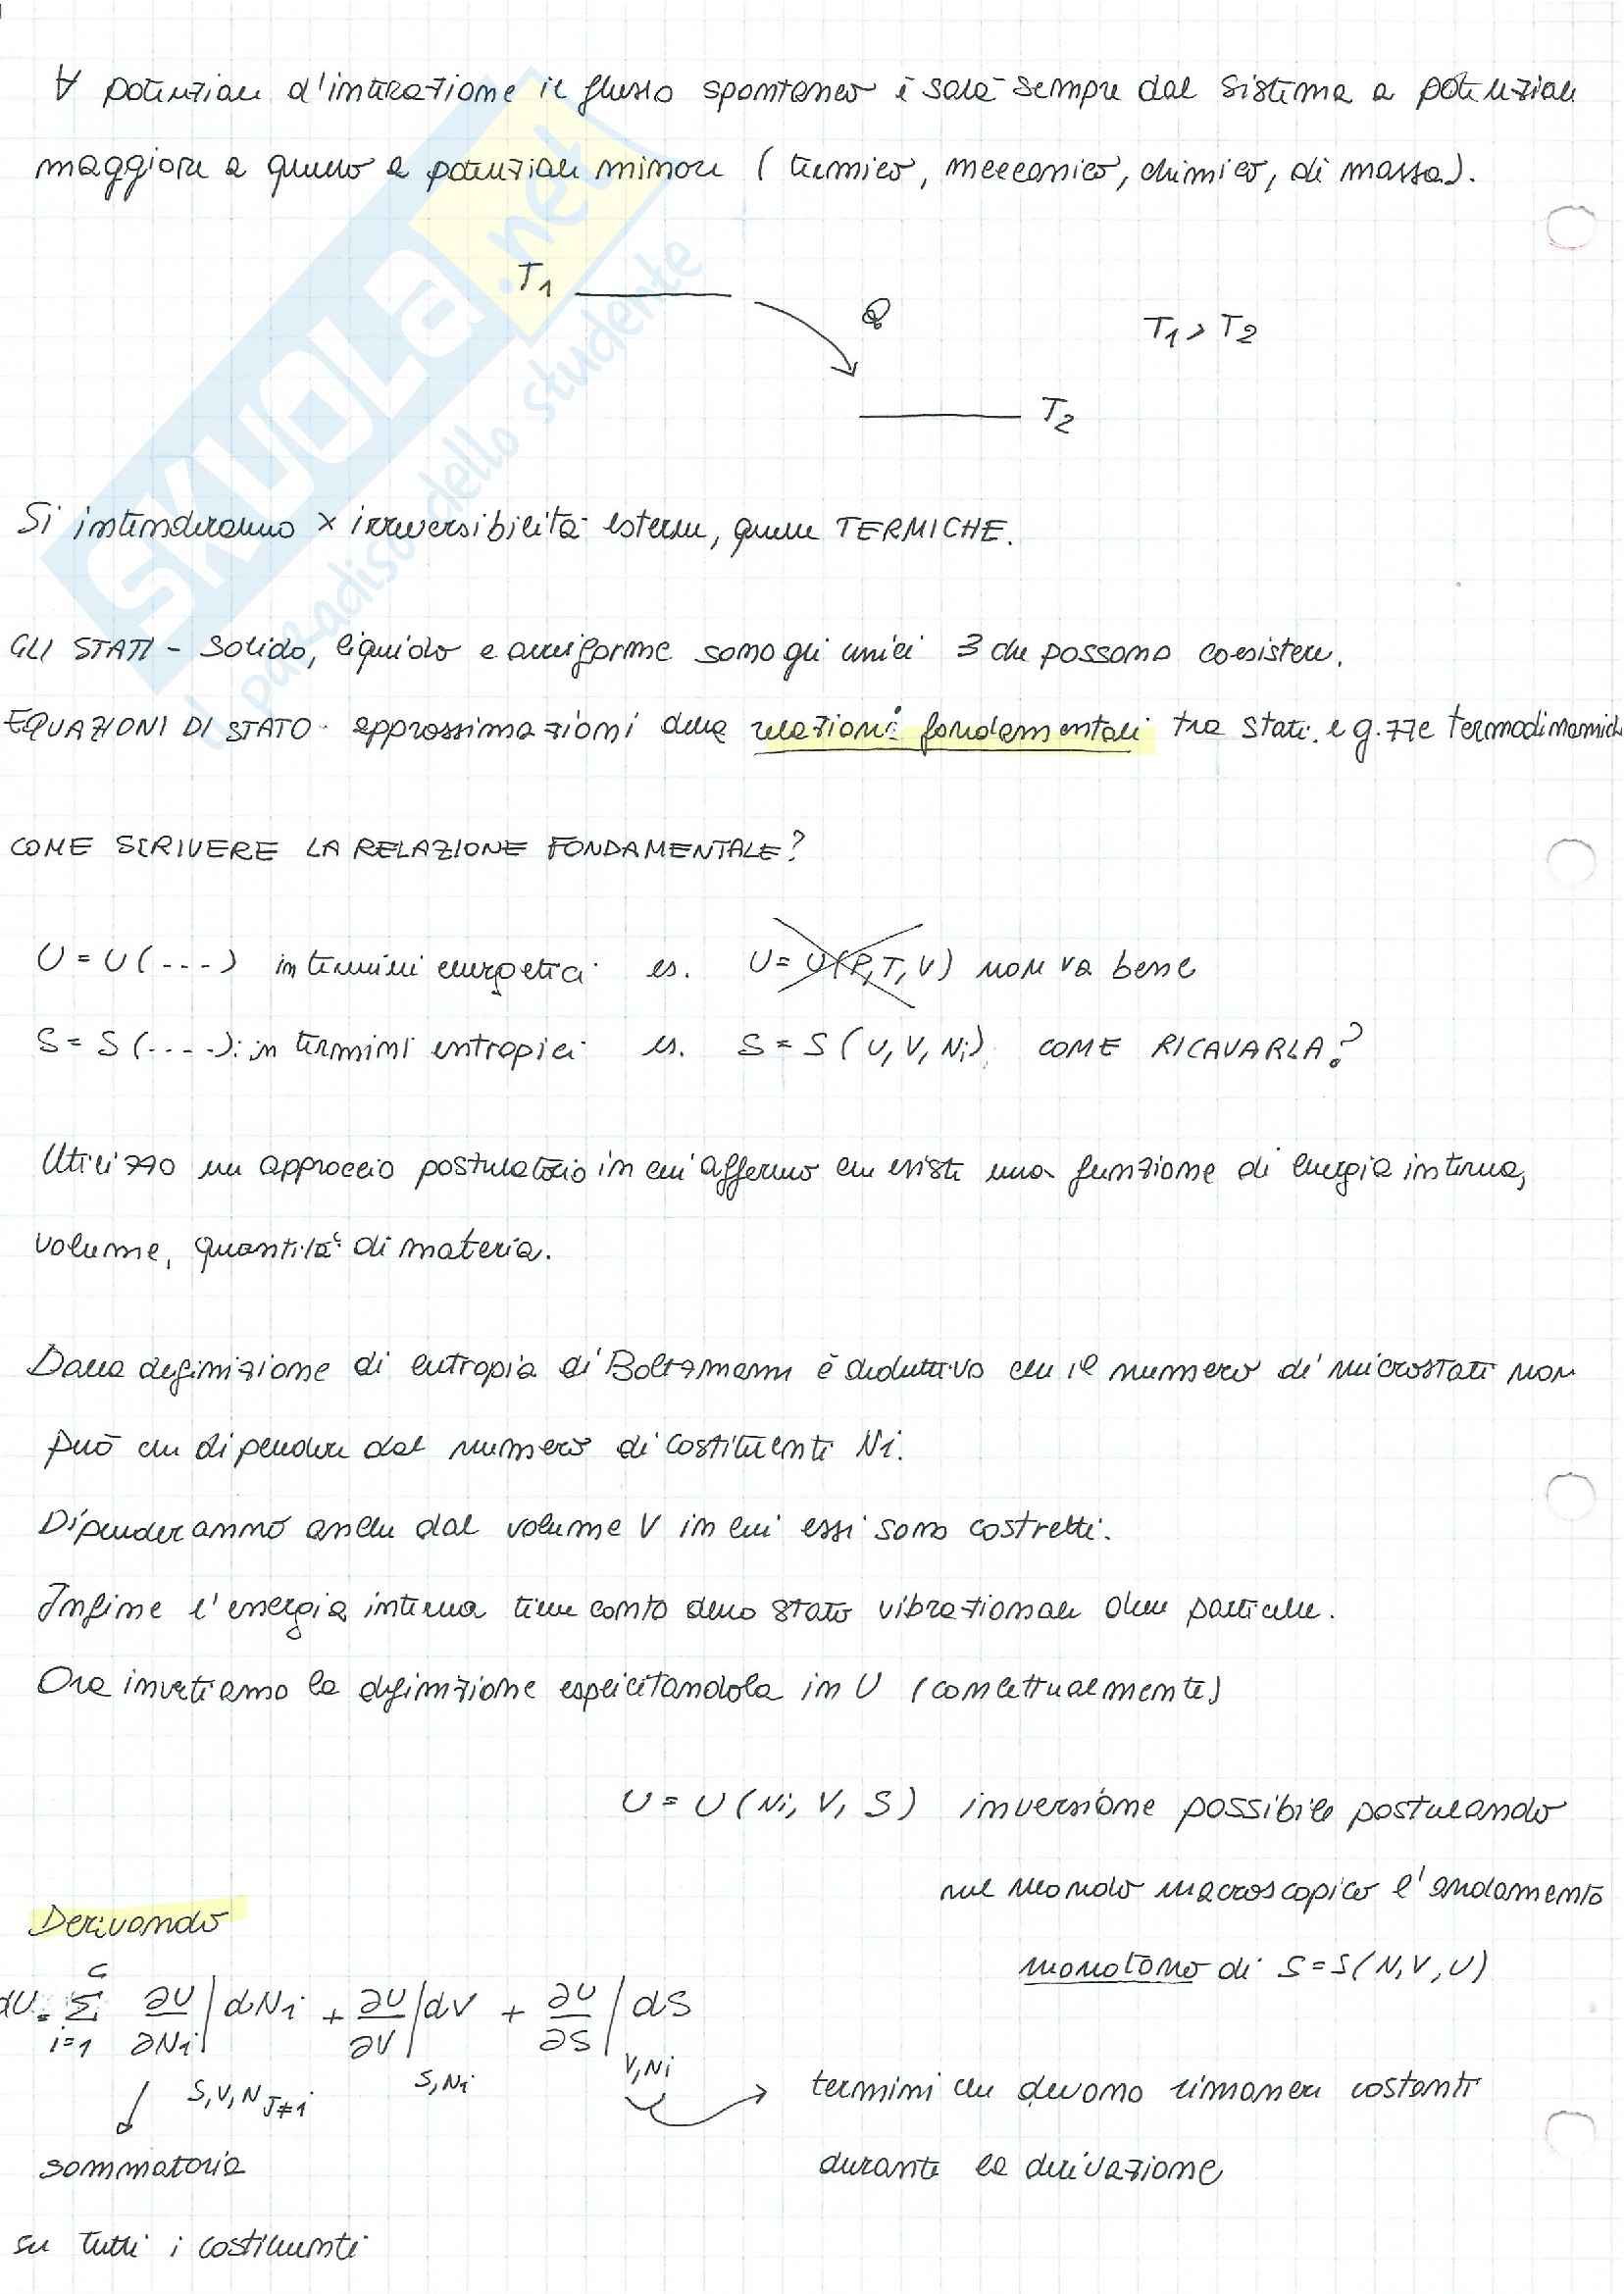 ∀ potenziale d'interazione il flusso spontaneo è sarà sempre dal sistema a potenziale
maggiore a quello a potenziale minore (termico, meccanico, chimico, di massa).
T1
Q
T1 > T2
T2
Si intenderanno × irreversibilità esterne, quelle TERMICHE.
GLI STATI - Solido, liquido e aeriforme sono gli unici 3 che possono coesistere.
EQUAZIONI DI STATO - approssimazioni delle relazioni fondamentali tra stati e g.zze termodinamich
COME SCRIVERE LA RELAZIONE FONDAMENTALE?
U = U (....) in termini energetici es. U = U(P,T,V) non va bene
S = S (.....): in termini entropici es. S = S (U,V,Ni) COME RICAVARLA?
Utilizzo un approccio postulatorio in cui affermo che esiste una funzione di energia interna,
volume, quantità di materia.
Dalla definizione di entropia di Boltzmann è deduttivo che il numero di microstati non
può che dipendere dal numero di costituenti Ni.
Dipenderanno anche dal volume V in cui essi sono costretti.
Infine l'energia interna tiene conto dello stato vibrazionale delle particelle.
Ora invertiamo la definizione esplicitandola in U (concettualmente)
U = U (Ni, V, S) inversione possibile postulando
nel mondo macroscopico l'andamento
monotono di S=S(N,V,U)
Derivando
dU = C Σ i=1 ∂U/∂Ni | dNi + ∂U/∂V | dV + ∂U/∂S | dS
S,V,N J≠i S,Ni V,Ni
termini che devono rimanere costanti
sommatoria durante la derivazione
su tutti i costituenti
SKUOLA.net
il paradiso dello studente